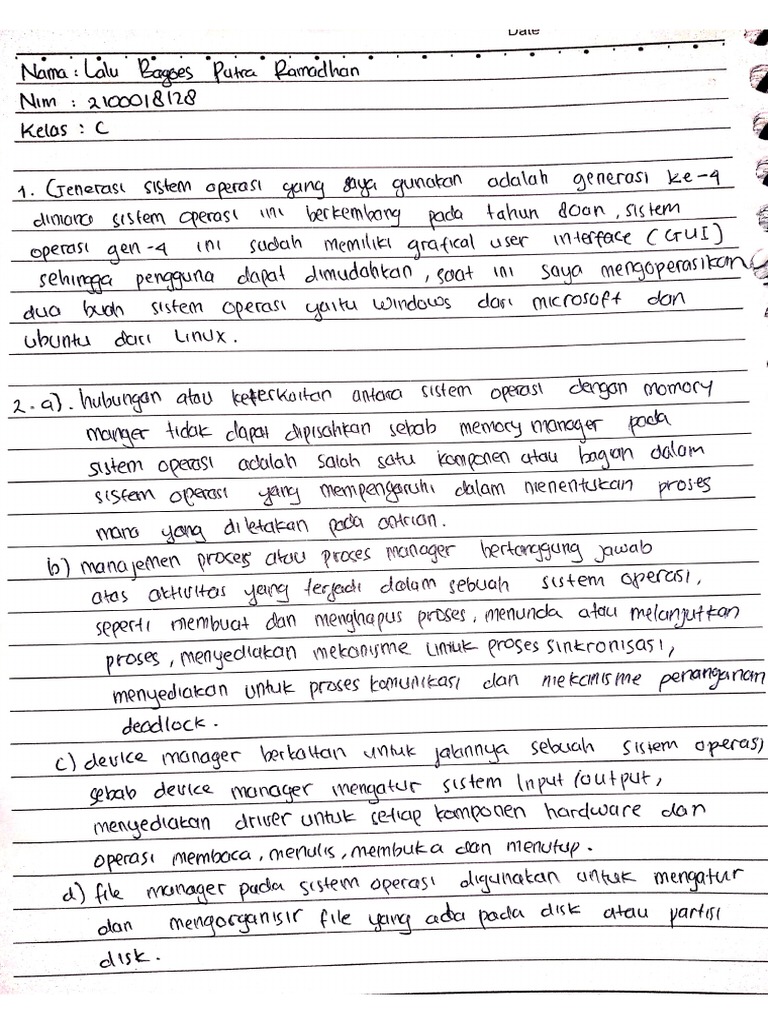 Date
Nama : Lalu Bagoes Putra Ramadhan
Nim : 2100018128
Kelas : C
1. Generasi sistem operasi yang saya gunakan adalah generasi ke-4
dimana sistem operasi ini berkembang pada tahun 80an, sistem
operasi gen-4 ini sudah memiliki grafical user interface (GUI)
sehingga pengguna dapat dimudahkan, saat ini saya mengoperasikan
dua buah sistem operasi yaitu windows dari microsoft dan
ubuntu dari Linux.
2. a). hubungan atau keterkaitan antara sistem operasi dengan momory
manger tidak dapat dipisahkan sebab memory manager pada
sistem operasi adalah salah satu komponen atau bagian dalam
sistem operasi yang mempengaruhi dalam menentukan proses
mana yang diletakan pada antrian.
b) manajemen proces atau proces manager bertanggung jawab
atas aktivitas yang terjadi dalam sebuah sistem operasi,
seperti membuat dan menghapus proses, menunda atau melanjutkan
proses, menyediakan mekanisme untuk proses sinkronisasi,
menyediakan untuk proses komunikasi dan mekanisme penanganan
deadlock.
c) device manager berkaitan untuk jalannya sebuah sistem operasi
sebab device manager mengatur sistem Input/output,
menyediakan driver untuk setiap komponen hardware dan
operasi membaca, menulis, membuka dan menutup.
d) file manager pada sistem operasi digunakan untuk mengatur
dan mengorganisir file yang ada pada disk atau partisi
disk.